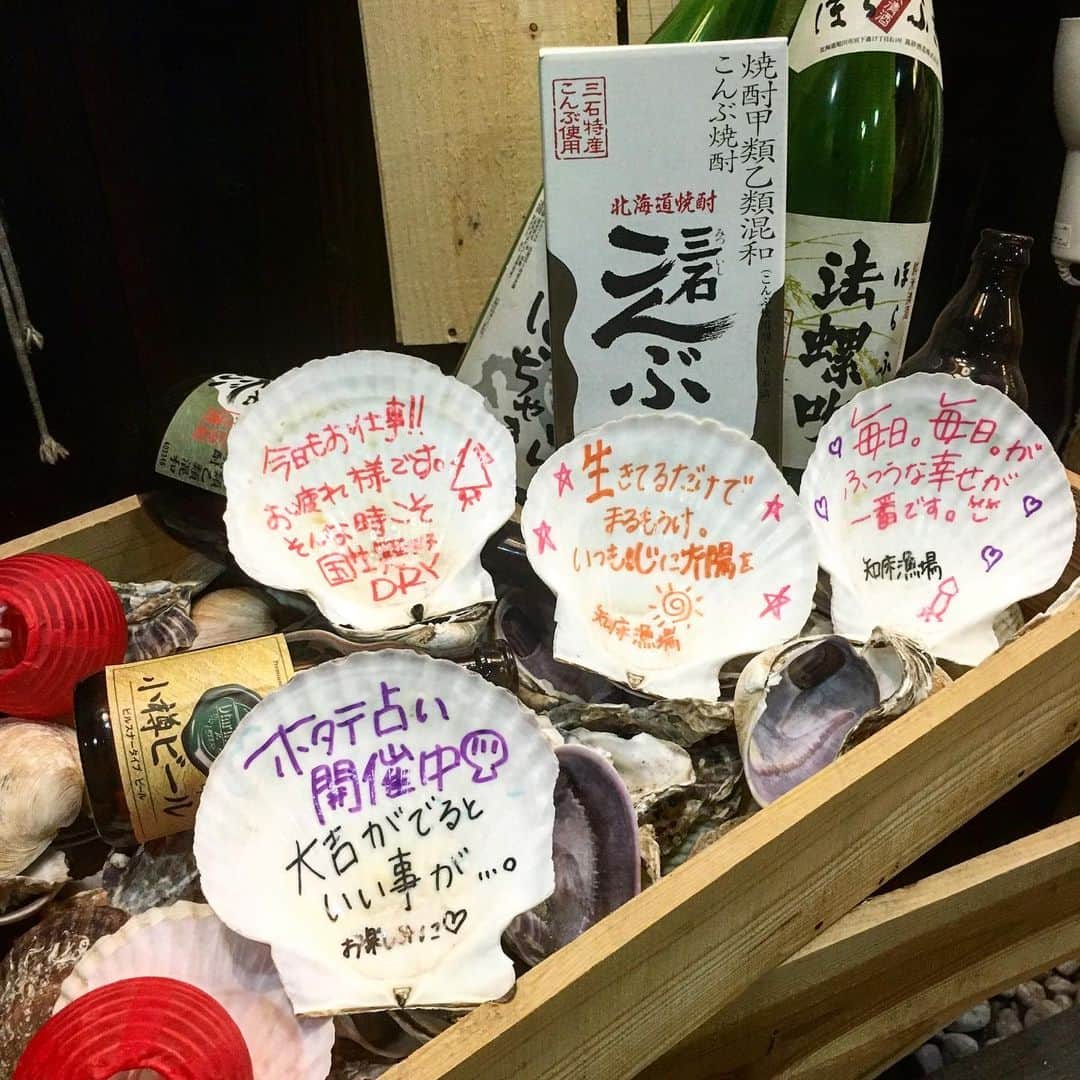 三石特産
こんぶ使用
焼酎甲類乙類混和
こんぶ焼酎
北海道焼酎
三石
みついし
こんぶ
清酒
法螺吹
今日もお仕事!!
お疲れ様です。
そんな時こそ
DRY
生きてるだけで
まるもうけ。
いつも心に太陽を
知床漁場
毎日。毎日。が
ふつうな幸せが
一番です。
知床漁場
小樽ビール
ピルスナータイプ・ビール
ホタテ占い
開催中
大吉がでると
いい事が…。
お楽しみに♡